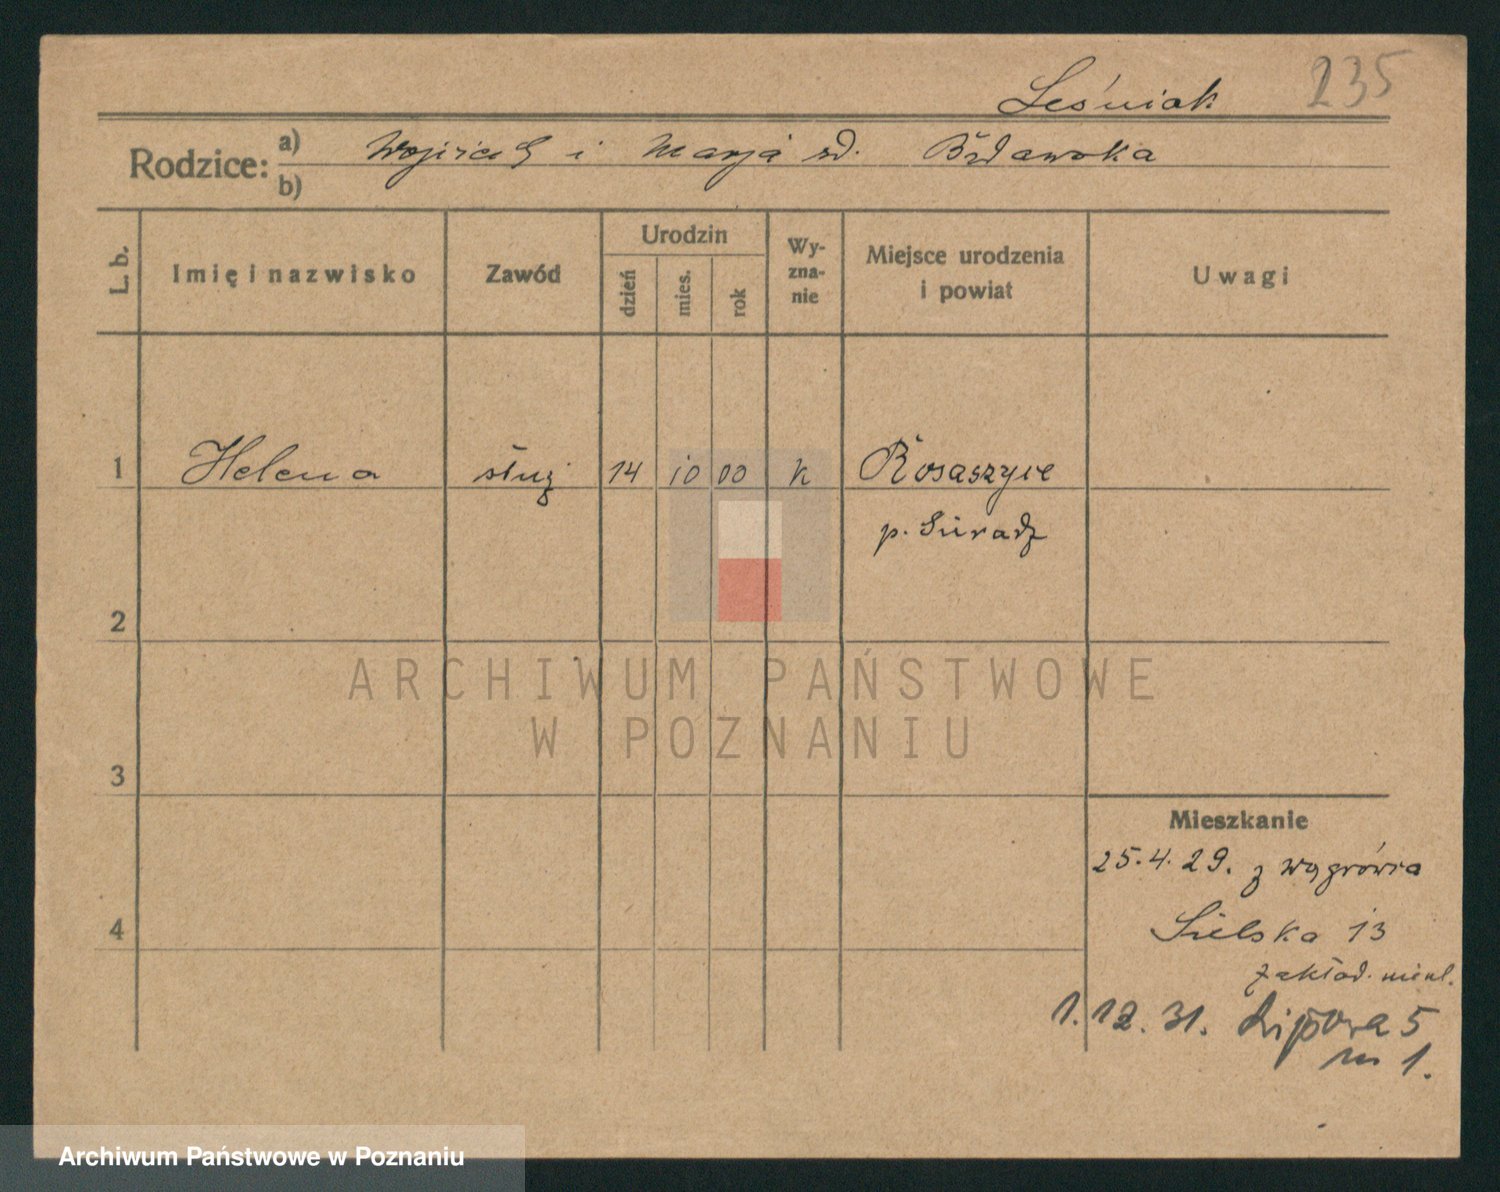 Leśniak 235
Rodzice: a) Wojciech i Marja zd.
b)
L. b. Imię i nazwisko Zawód Urodzin dzień mies. rok Wyznanie Miejsce urodzenia i powiat Uwagi
1 Helena służ 14 10 00 k Rosaszyce
p. Sieradz
2
3
Mieszkanie
25.4.29. z Wągrówca
4 Sielska 13
zakład.
1.12.31. Lipowa 5
m 1.
ARCHIWUM PAŃSTWOWE
W POZNANIU
Archiwum Państwowe w Poznaniu